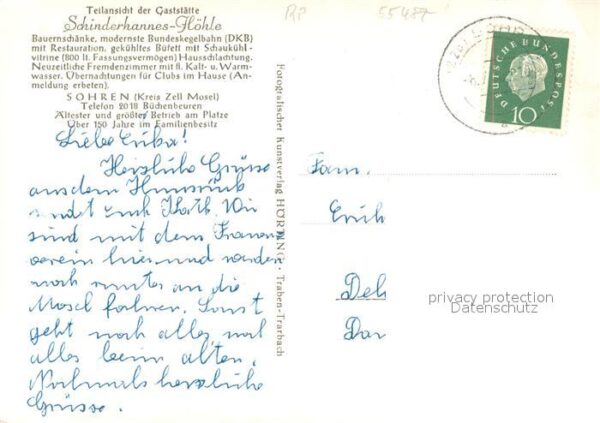 Teilansicht der Gaststätte
Schinderhannes-Höhle
Bauernschänke, modernste Bundeskegelbahn (DKB)
mit Restauration, gekühltes Büfett mit Schaukühl-
vitrine (800 ll. Fassungsvermögen) Hausschlachtung.
Neuzeitliche Fremdenzimmer mit fl. Kalt- u. Warm-
wasser. Übernachtungen für Clubs im Hause (An-
meldung erbeten).
SOHREN (Kreis Zell Mosel)
Telefon 2018 Büchenbeuren
Ältester und größter Betrieb am Platze
Über 150 Jahre im Familienbesitz
Liebe Erika!
Herzliche Grüsse
aus dem Hunsrück
sendet Euch Kath. Wir
sind mit dem Frauen
verein hier und werden
noch runter an die
Mosel fahren. Sonst
geht noch alles mal
alles beim alten.
Nochmals herzliche
Grüsse.
Fotografischer Kunstverlag HÖRNING · Traben-Trarbach
RP
55487
DEUTSCHE BUNDESPOST
10
Fam.
Erich
Dar
privacy protection
Datenschutz